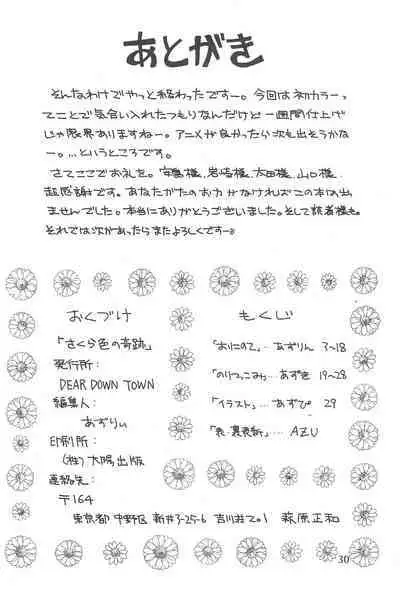 あとがき
そんなわけでやっと終わったですー。今回は初カラーっ
てことで気合い入れたつもりなんだけど一週間仕上げ
じゃ限界ありますねー。アニメが良かったら次も出そうかな
ー。…というところです。
さてここでお礼を。宇鷹様、岩崎様、太田様、山口様、
超感謝です。あなたがたのお力がなければこの本は出
ませんでした。本当にありがとうございました。そして読者様も。
それでは次があったらまたよろしくですー。
おくづけ
「さくら色の奇跡」
発行所：
DEAR DOWN TOWN
編集人：
あずりぃ
印刷所：
(株)大陽出版
連絡先：
〒164
東京都中野区新井3-25-6 吉川荘201 萩原正和
もくじ
「おにのて」…あずりん 3~18
「のりつっこみっ」…あずき 19~28
「イラスト」…あずぴ 29
「表・裏表紙」…AZU
30